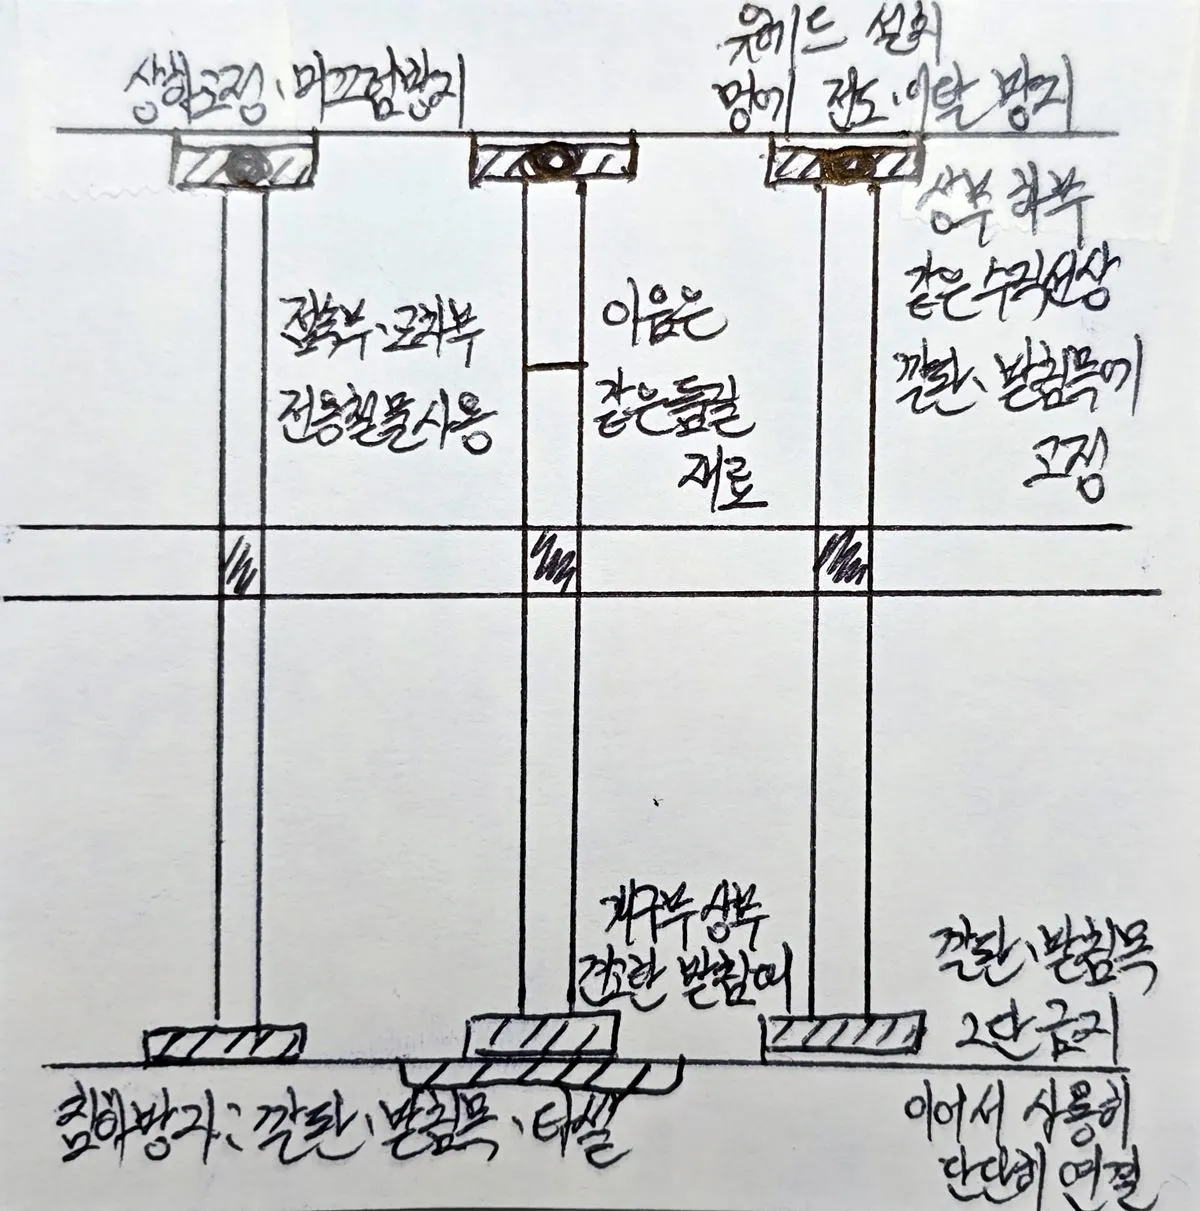 상하고정、미끄럼방지
유헤드 설치
멍에 전도、이탈 방지
상부 하부
같은 수직선상
깔판、받침목에
고정
접속부、교차부
전용철물사용
이음은
같은품질
재료
개구부 상부
견고한 받침대
깔판、받침목
2단 금지
이어서 사용시
단단히 연결
침하방지: 깔판、받침목、타설